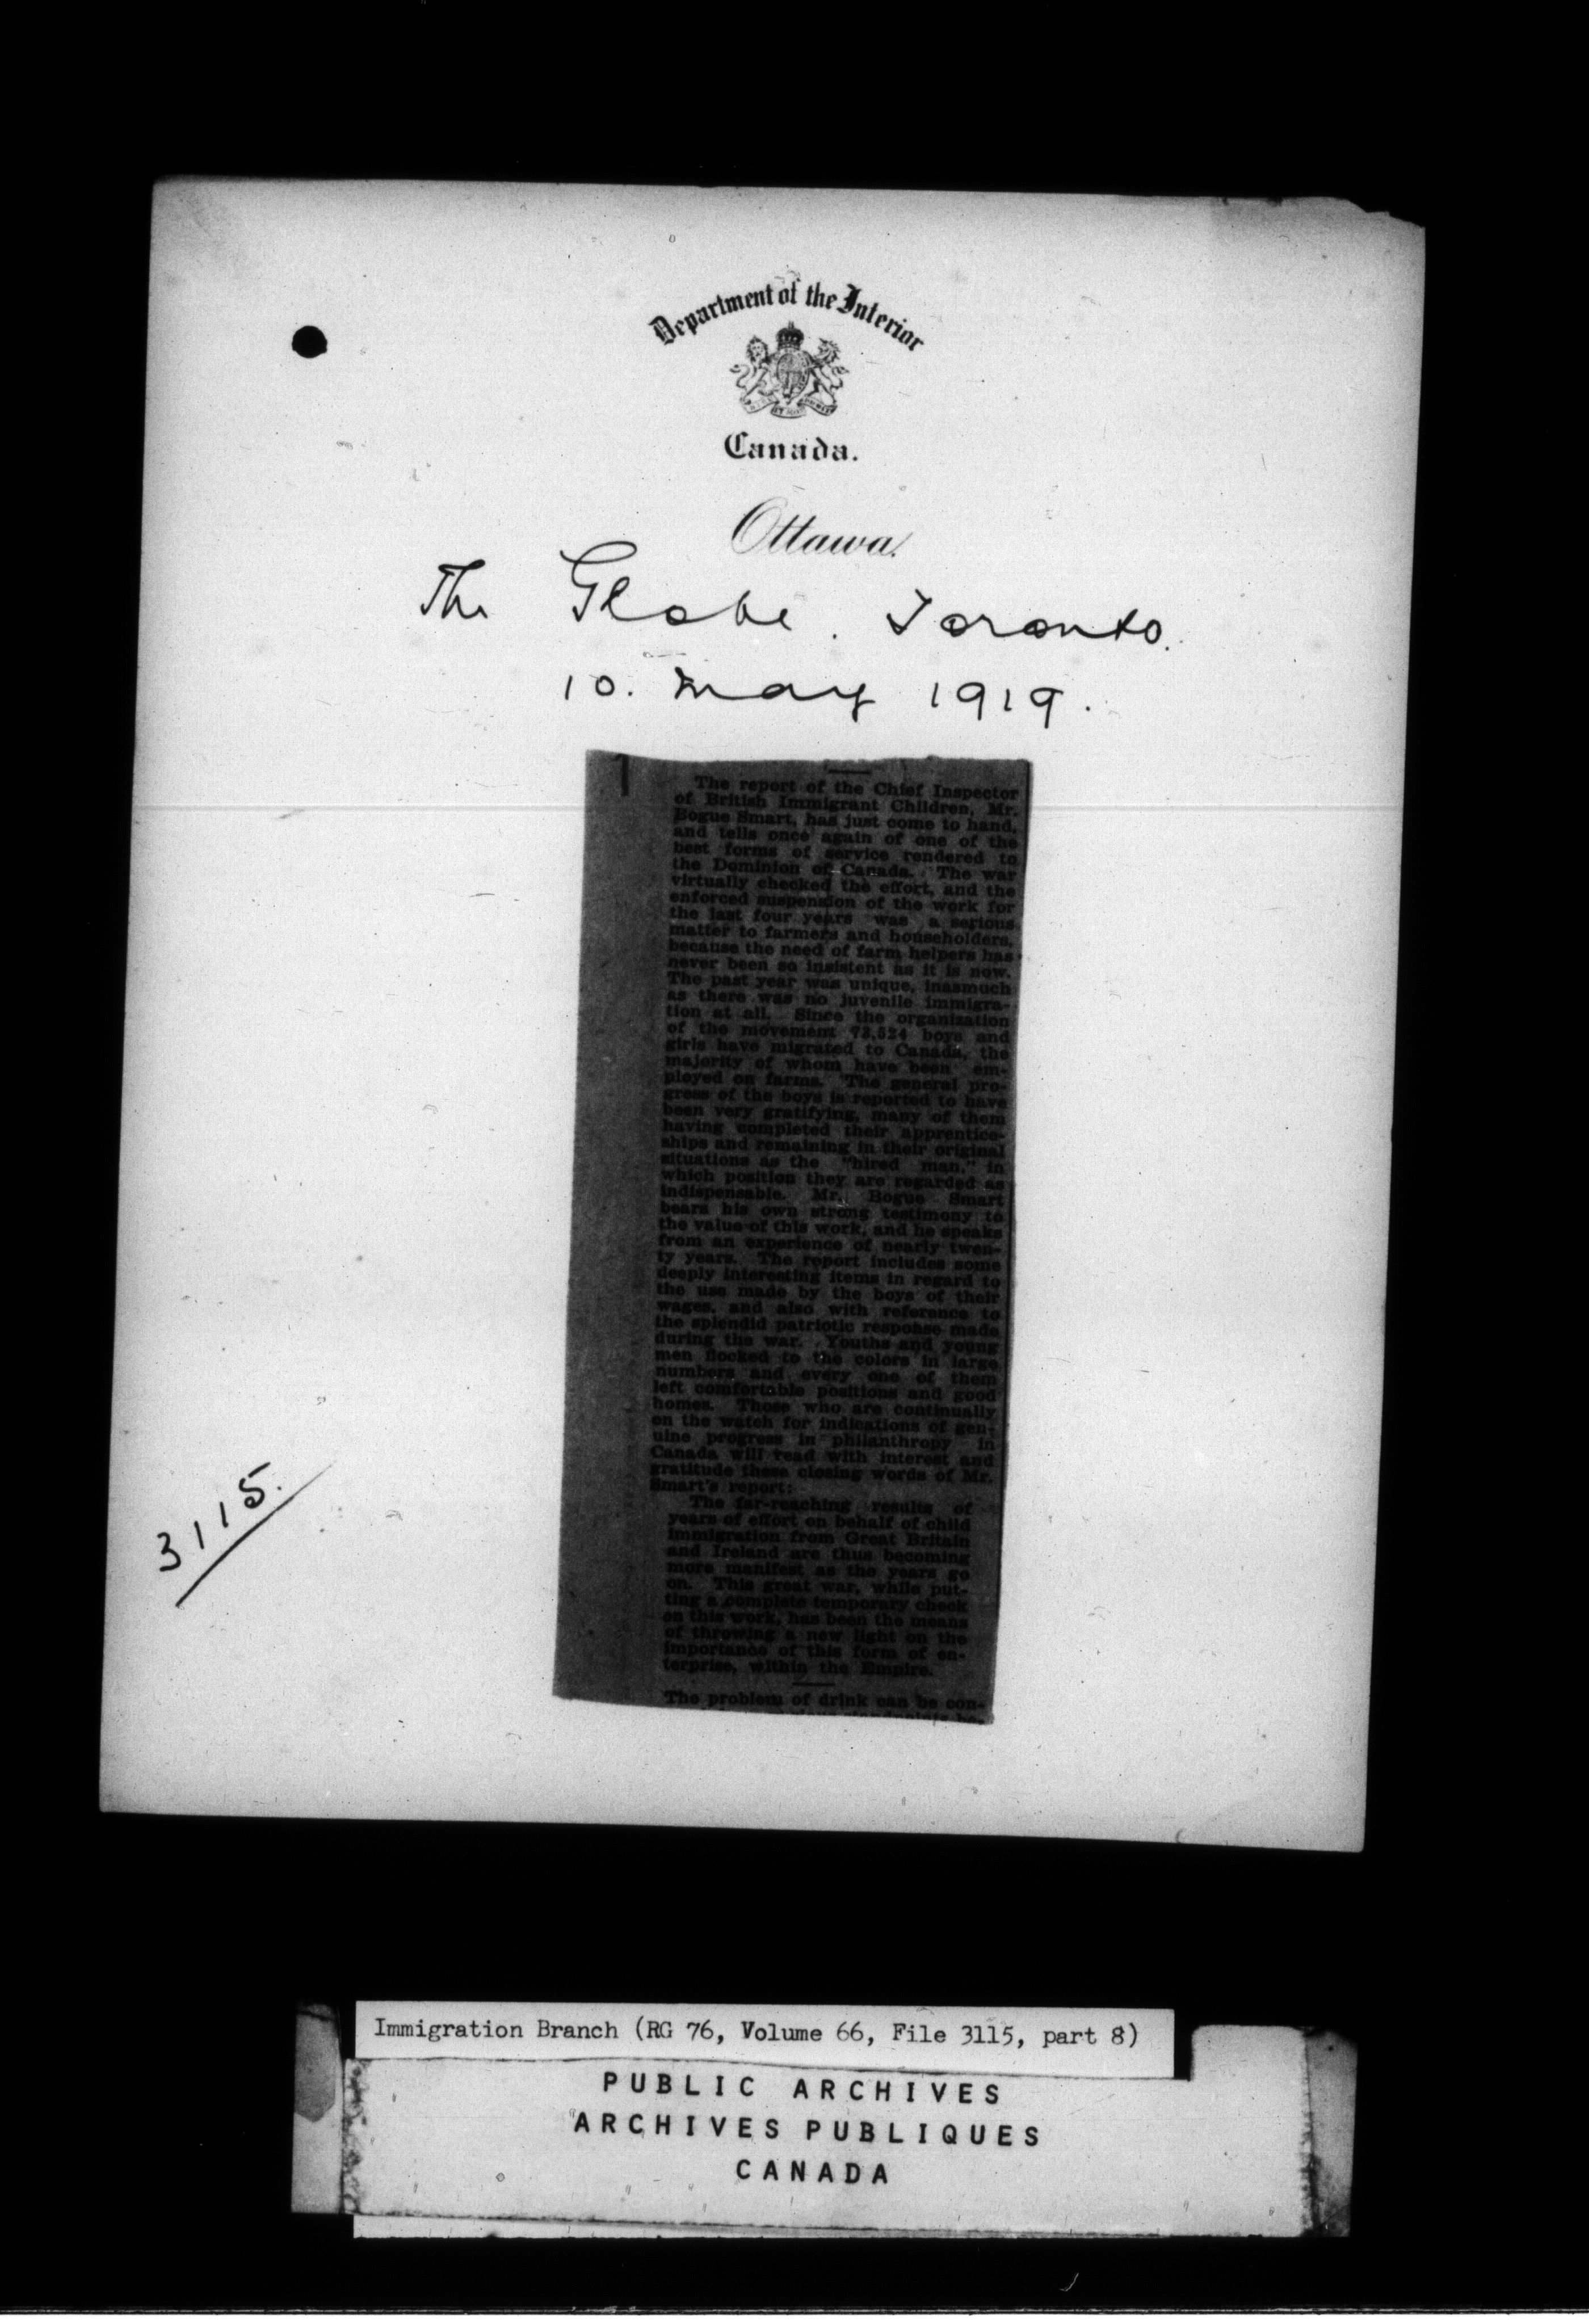 Department of the Interior
Canada.
Ottawa.
The Globe. Toronto.
10. May 1919.
The report of the Chief Inspector
of British Immigrant Children, Mr.
Bogue Smart, has just come to hand,
and tells once again of one of the
best forms of service rendered to
the Dominion of Canada. The war
virtually checked the effort, and the
enforced suspension of the work for
the last four years was a serious
matter to farmers and householders,
because the need of farm helpers has
never been so insistent as it is now.
The past year was unique, inasmuch
as there was no juvenile immigra-
tion at all. Since the organization
of the movement 73,524 boys and
girls have migrated to Canada, the
majority of whom have been em-
ployed on farms. The general pro-
gress of the boys is reported to have
been very gratifying, many of them
having completed their apprentice-
ships and remaining in their original
situations as the "hired man," in
which position they are regarded as
indispensable. Mr. Bogue Smart
bears his own strong testimony to
the value of this work, and he speaks
from an experience of nearly twen-
ty years. The report includes some
deeply interesting items in regard to
the use made by the boys of their
wages, and also with reference to
the splendid patriotic response made
during the war. Youths and young
men flocked to the colors in large
numbers and every one of them
left comfortable positions and good
homes. Those who are continually
on the watch for indications of gen-
uine progress in philanthropy in
Canada will read with interest and
gratitude these closing words of Mr.
Smart's report:
The far-reaching results of
years of effort on behalf of child
immigration from Great Britain
and Ireland are thus becoming
more manifest as the years go
on. This great war, while put-
ting a complete temporary check
on this work, has been the means
of throwing a new light on the
importance of this form of en-
terprise, within the Empire.
The problem of drink can be con-
3115.
Immigration Branch (RG 76, Volume 66, File 3115, part 8)
PUBLIC ARCHIVES
ARCHIVES PUBLIQUES
CANADA